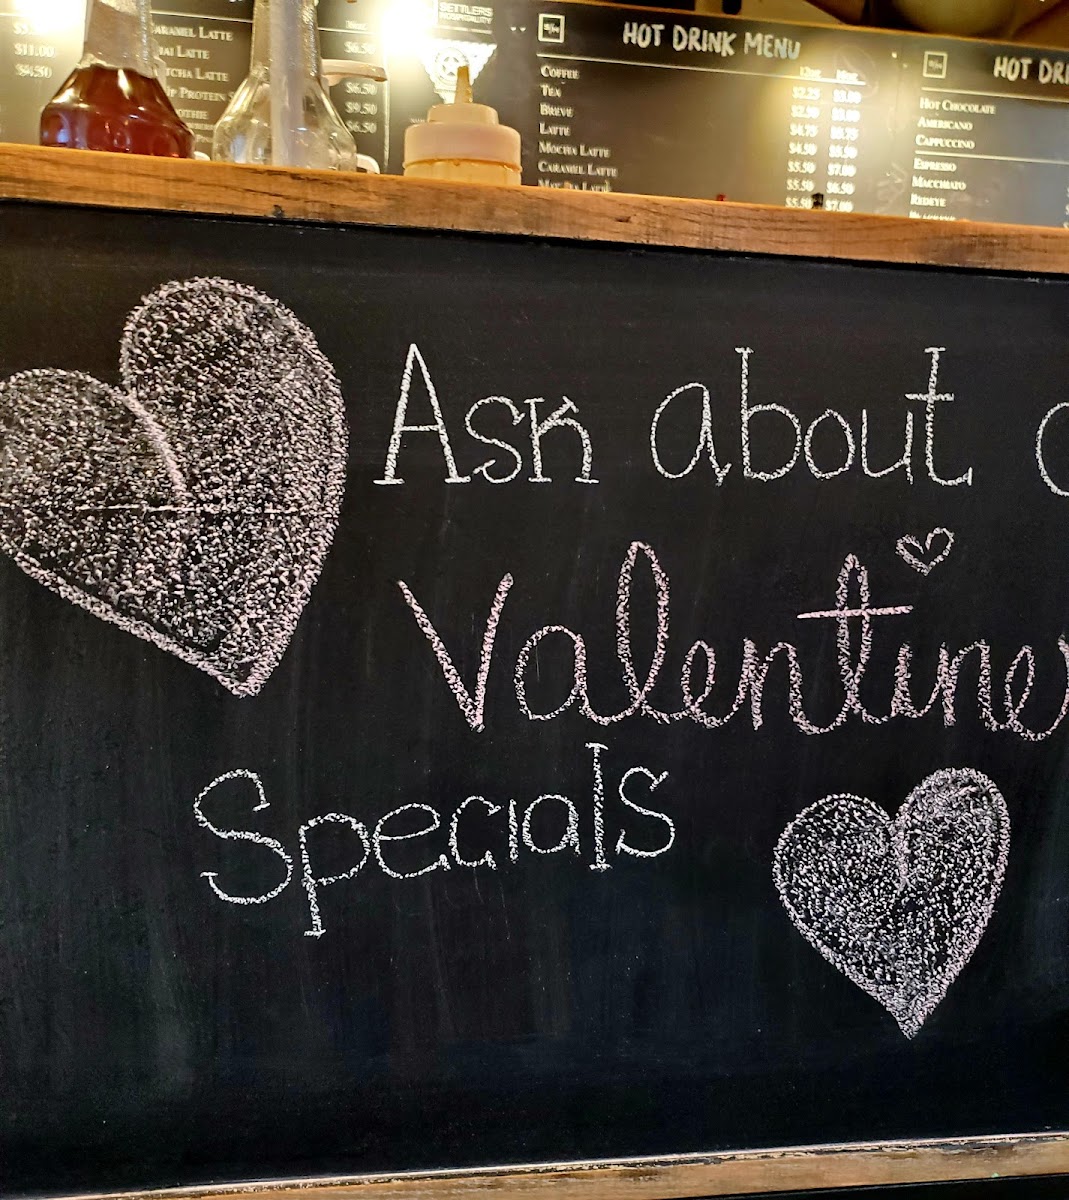 $11.00
$4.50
Caramel Latte
Latte
Latte
Protein
$6.50
$6.50
$9.50
$6.50
SETTLERS
HOSPITALITY
HOT DRINK MENU
12oz 16oz
Coffee $2.25 $3.00
Tea $2.50 $3.00
Breve $4.75 $5.75
Latte $4.50 $5.50
Mocha Latte $5.50 $7.00
Caramel Latte $5.50 $6.50
$5.50 $7.00
HOT
Hot Chocolate
Americano
Cappuccino
Espresso
Macchiato
Redeye
Ask about
Valentine
Specials